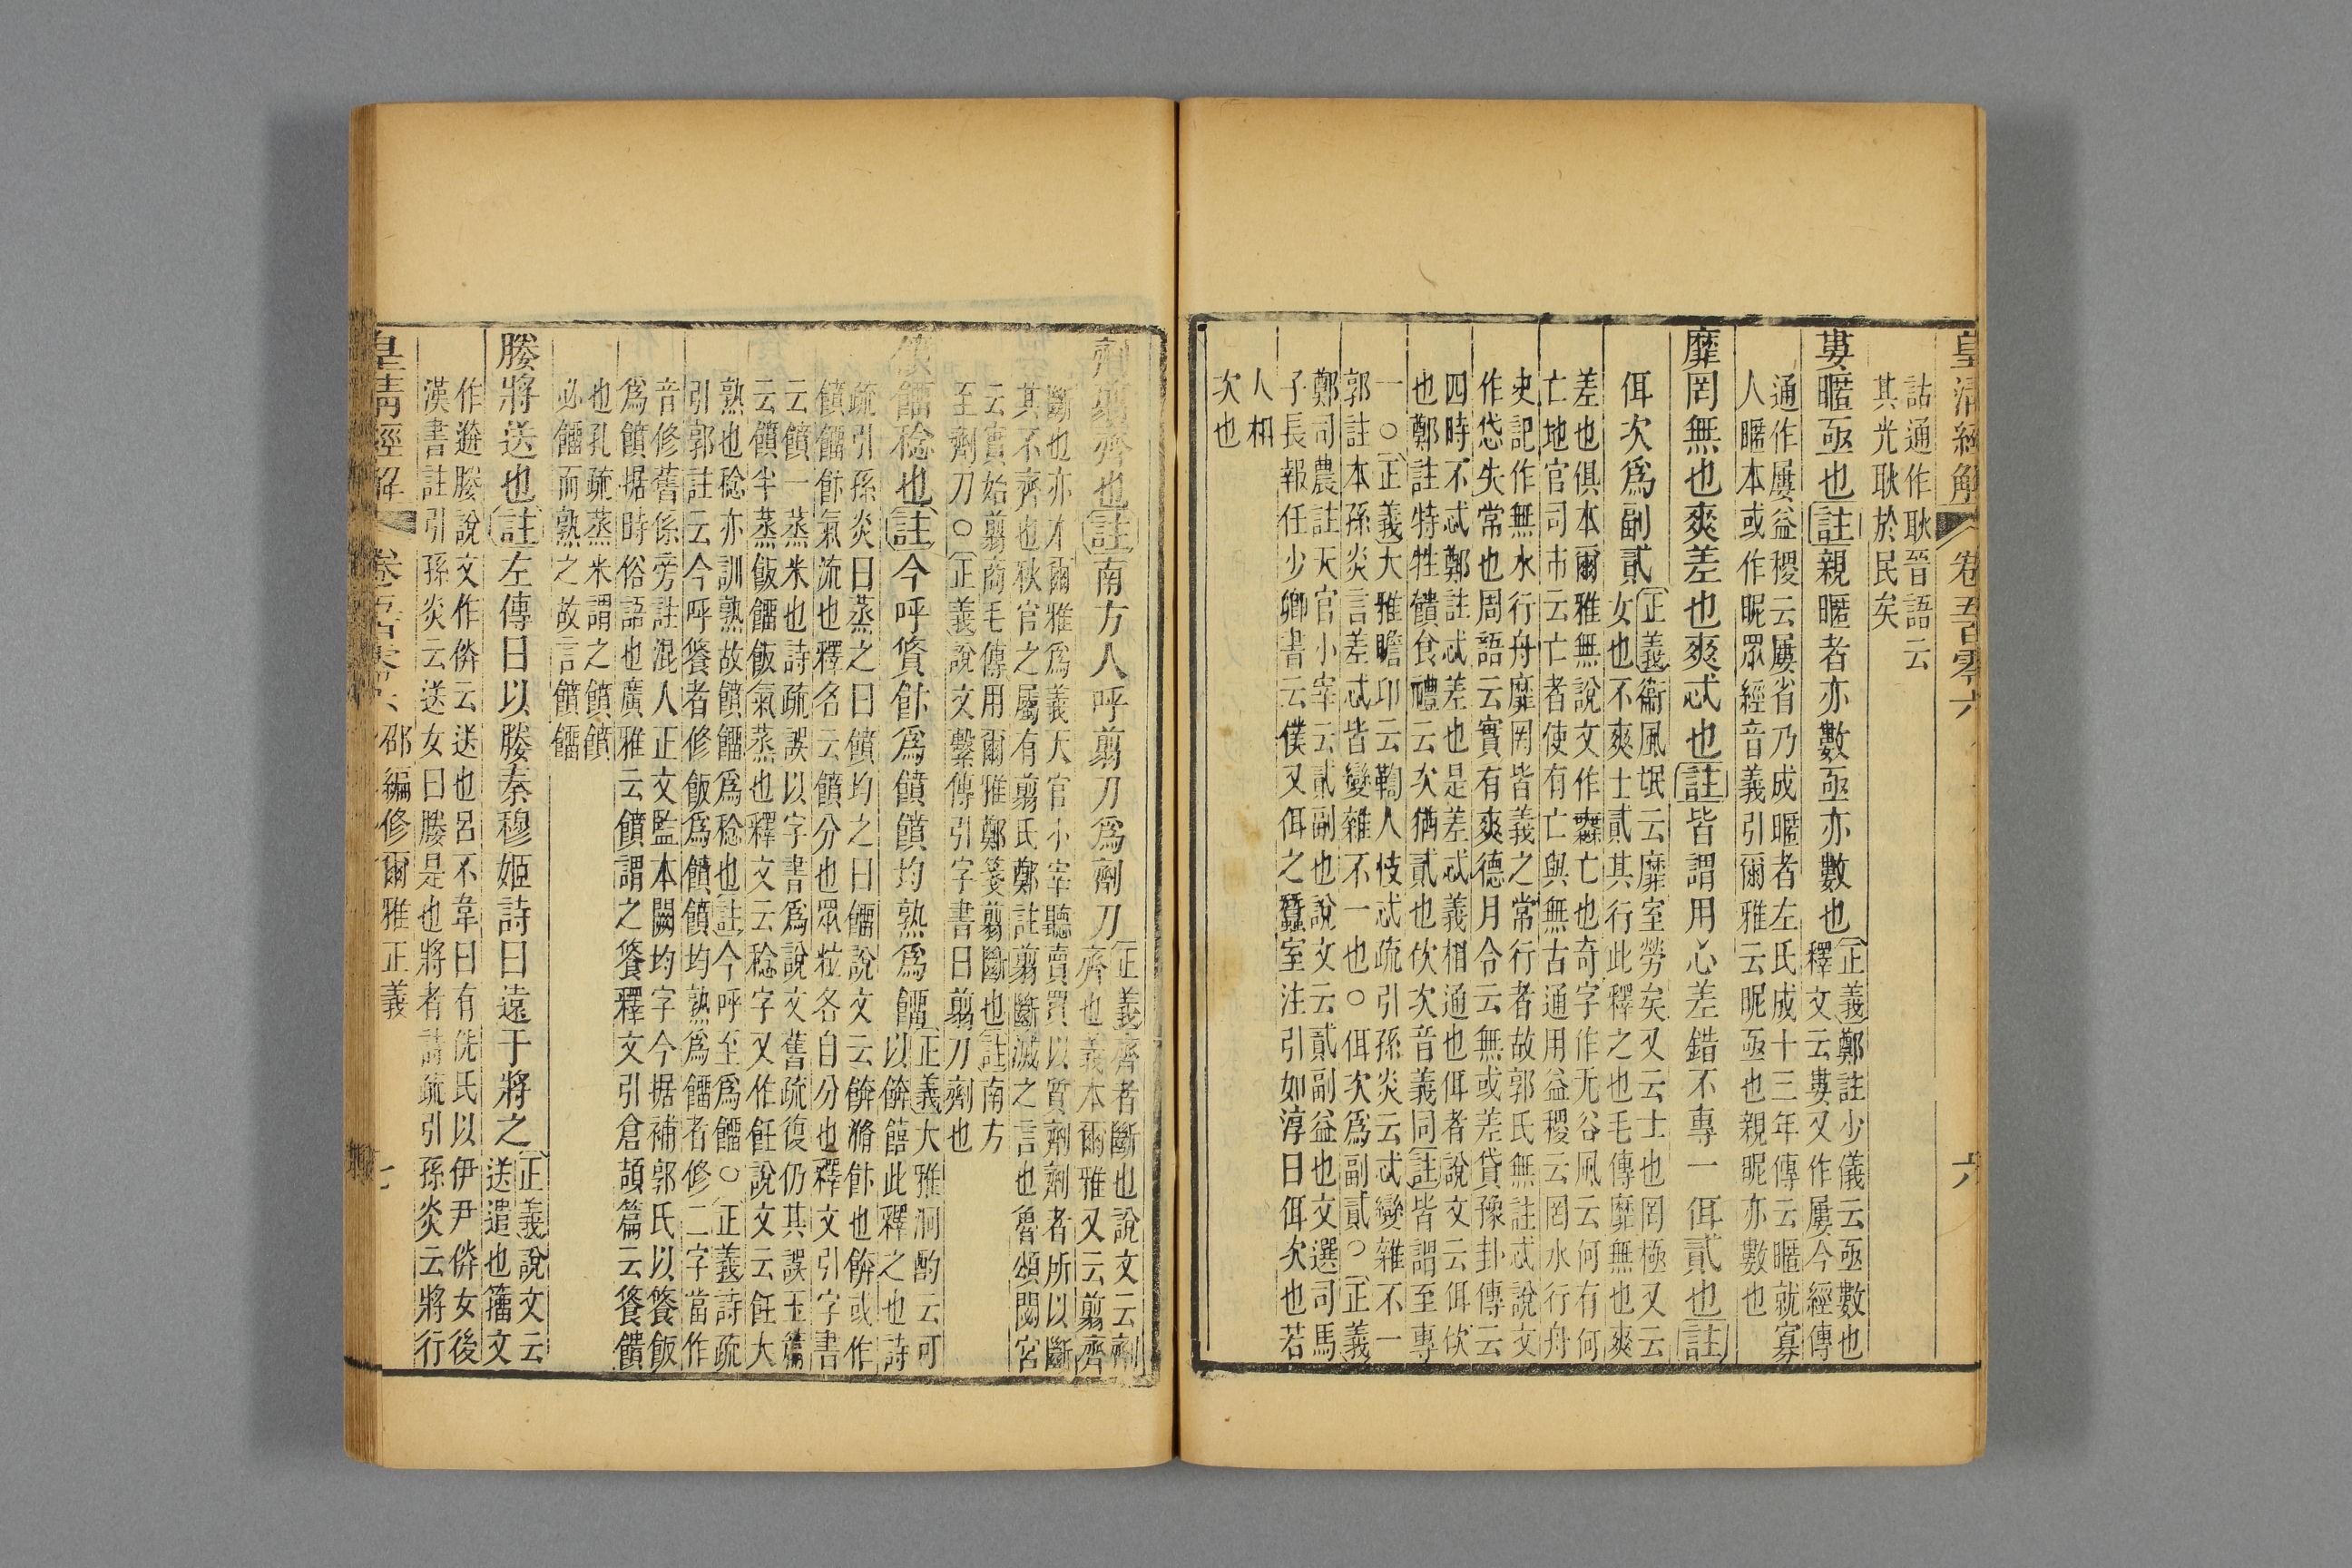 皇清經解 卷五百零六 六
詁通作耿晉語云
其光耿於民矣
婁暱亟也註親暱者亦數亟亦數也正義鄭註少儀云亟數也
釋文云婁又作屢今經傳
通作屢益稷云屢省乃成暱者左氏成十三年傳云暱就寡
人暱本或作昵眾經音義引爾雅云昵亟也親昵亦數也
靡罔無也爽差也爽忒也註皆謂用心差錯不專一佴貳也註
佴次爲副貳正義衞風氓云靡室勞矣又云士也罔極又云
女也不爽士貳其行此釋之也毛傳靡無也爽
差也俱本爾雅無說文作𣠮亡也奇字作无谷風云何有何
亡地官司市云亡者使有亡與無古通用益稷云罔水行舟
史記作無水行舟靡罔皆義之常行者故郭氏無註忒說文
作㤅失常也周語云實有爽德月令云無或差貸豫卦傳云
四時不忒鄭註忒差也是差忒義相通也佴者說文云佴佽
也鄭註特牲饋食禮云次猶貳也佽次音義同註皆謂至專
一○正義大雅瞻卬云鞫人忮忒疏引孫炎云忒變雜不一
郭註本孫炎言差忒皆變雜不一也○佴次爲副貳○正義
鄭司農註天官小宰云貳副也說文云貳副益也文選司馬
子長報任少卿書云僕又佴之蠶室注引如淳曰佴次也若
人相
次也
劑翦齊也註南方人呼翦刀爲劑刀正義齊者斷也說文云劑
齊也義本爾雅又云翦齊
斷也亦本爾雅爲義天官小宰聽賣買以質劑劑者所以斷
其不齊也秋官之屬有翦氏鄭註翦斷滅之言也魯頌閟宮
云實始翦商毛傳用爾雅鄭箋翦斷也註南方
至劑刀○正義說文繫傳引字書曰翦刀劑也
饙餾稔也註今呼䬸飵爲饙饙均熟爲餾正義大雅泂酌云可
以餴饎此釋之也詩
疏引孫炎曰蒸之曰饙均之曰餾說文云餴滫飵也餴或作
饙餾飵氣流也釋名云饙分也眾粒各自分也釋文引字書
云饙一蒸米也詩疏誤以字書爲說文舊疏復仍其誤玉篇
云饙半蒸飯餾飯氣蒸也釋文云稔字又作飪說文云飪大
熟也稔亦訓熟故饙餾爲稔也註今呼至爲餾○正義詩疏
引郭註云今呼䬸者修飯爲饙饙均熟爲餾者修二字當作
音修舊係旁註混人正文監本闕均字今据補郭氏以䬸飯
爲饙据時俗語也廣雅云饙謂之䬸釋文引倉頡篇云䬸饙
也孔疏蒸米謂之饙饙
必餾而熟之故言饙餾
媵將送也註左傳曰以媵秦穆姬詩曰遠于將之正義說文云
送遣也籀文
作𨕙媵說文作倂云送也呂不韋曰有侁氏以伊尹倂女後
漢書註引孫炎云送女曰媵是也將者詩疏引孫炎云將行
皇清經解 卷五百零六 邵編修爾雅正義 七